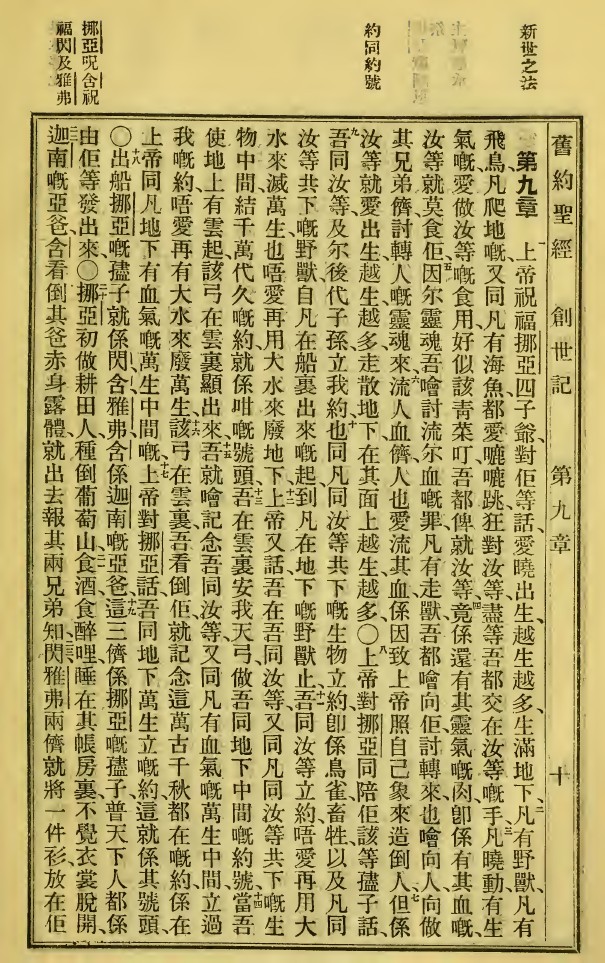 新世之法
約同約號
挪亞呪含祝
福閃及雅弗
舊約聖經 創世記 第九章 十
第九章 一上帝祝福挪亞四子爺、對佢等話、愛曉出生越生越多、生滿地下、二凡有野獸、凡有
飛鳥、凡爬地嘅、又同凡有海魚、都愛嚈嚈跳狂對汝等、盡等吾都交在汝等嘅手、三凡曉動有生
氣嘅、愛做汝等嘅食用、好似該青菜叮、吾都俾就汝等、四竟係還有其靈氣嘅肉、卽係有其血嘅、
汝等就莫食佢、五因尔靈魂、吾噲討流尔血嘅罪、凡有走獸、吾都噲向佢討轉來、也噲向人、向做
其兄弟儕、討轉人嘅靈魂來、六流人血儕、人也愛流其血、係因致上帝照自己象來造倒人、七但係
汝等就愛出生、越生越多、走散地下、在其面上越生越多、〇八上帝對挪亞同陪佢該等孻子話、
九吾同汝等及尔後代子孫立我約也、十同凡同汝等共下嘅生物立約、卽係鳥雀畜牲、以及凡同
汝等共下嘅野獸、自凡在船裏出來嘅起、到凡在地下嘅野獸止、十一吾同汝等立約、唔愛再用大
水來滅萬生、也唔愛再用大水來廢地下、十二上帝又話、吾在吾同汝等、又同凡同汝等共下嘅生
物中間、結千萬代久嘅約、就係咁嘅號頭、十三吾在雲裏安我天弓、做吾同地下中間嘅約號、十四當吾
使地上有雲起、該弓在雲裏顯出來、十五吾就噲記念吾同汝等、又同凡有血氣嘅萬生中間立過
我嘅約、唔愛再有大水來廢萬生、十六該弓在雲裏、吾看倒佢、就記念這萬古千秋都在嘅約、係在
上帝同凡地下有血氣嘅萬生中間嘅、十七上帝對挪亞話、吾同地下萬生立嘅約、這就係其號頭、
〇十八出船挪亞嘅孻子、就係閃、含、雅弗、含係迦南嘅亞爸、十九這三儕係挪亞嘅孻子、普天下人都係
由佢等發出來、〇二十挪亞初做耕田人、種倒葡萄山、二一食酒食醉哩、睡在其帳房裏、不覺衣裳脫開、
二二迦南嘅亞爸含、看倒其爸赤身露體、就出去報其兩兄弟知、二三閃雅弗兩儕、就將一件衫、放在佢